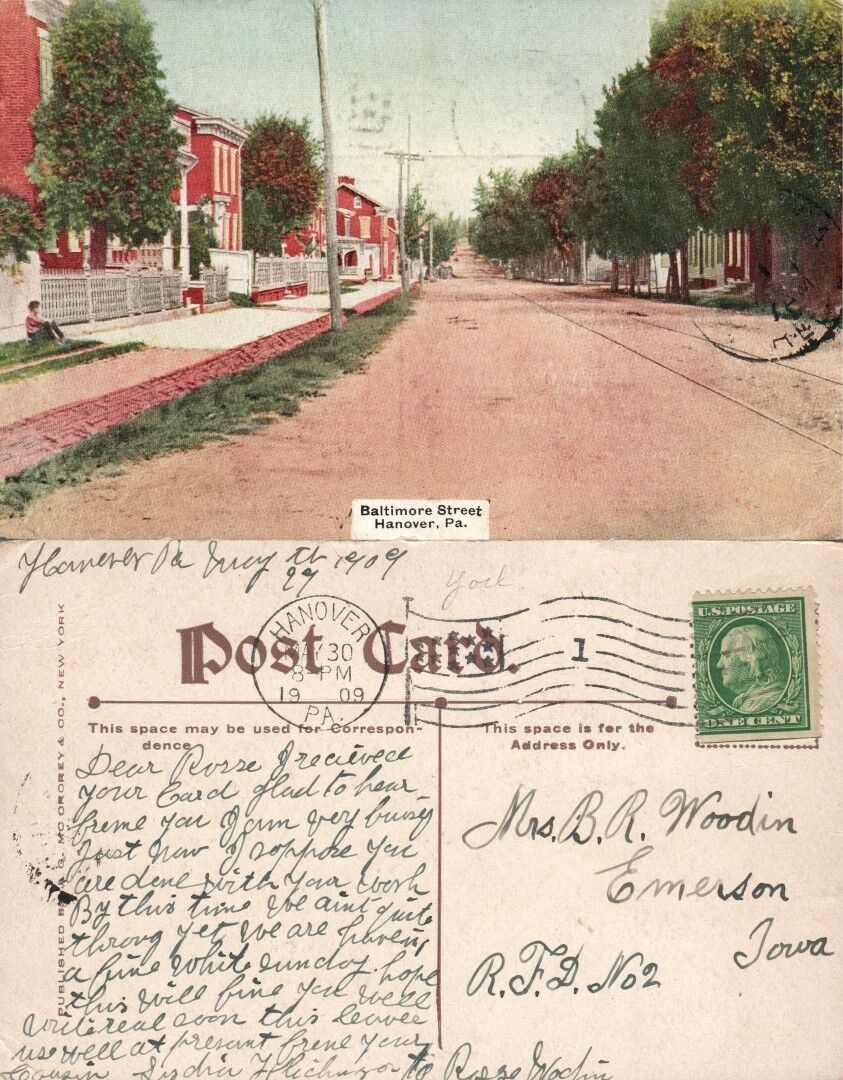 Baltimore Street
Hanover, Pa.
Hanover Pa May th 29 1909
York
Post Card.
HANOVER
MAY 30
8-PM
19 09
PA.
1
U.S. POSTAGE
ONE CENT
This space may be used for Correspon-
dence
This space is for the
Address Only.
PUBLISHED BY I. G. MC CROREY & CO., NEW YORK
Dear Rosse I recieved
your Card glad to hear
freme you I am very buisy
Just now I soppose you
are done with your work
By this time we aint quite
throug yet we are haveing
a fine white sunday. hope
this will fine you well
write real soon this leaves
us well at presant freme your
Cousin to Rosse Wodin
Mrs. B. R. Woodin
Emerson
Iowa
R.F.D. No 2